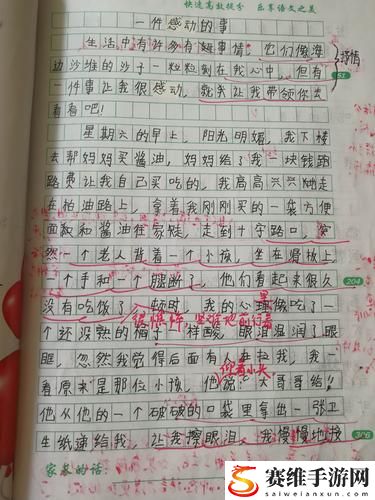 快速高效提分 乐享语文之美
一件感动的事
生活中有许多有趣事情，它们像海
边沙堆的沙子一粒粒刻在我心中，但有
抒情
51
一件事让我很感动，就来让我带领你去
看看吧！
星期六的早上，阳光明媚，我下楼
去帮妈妈买酱油，妈妈给了我一块钱跑
路费让我自己买吃的，我高高兴兴地走
在柏油路上，拿着我刚刚买的一袋方便
面和酱油往家赶，走到十字路口，突
然一个老人背着一个小孩，坐在滑板上，
一个手和一个腿断了，他们看起来很久
204
没有吃饭了，顿时，我的心里像吃了一
艰难地前行着
个还没熟的橘子一样酸，眼泪湿润了眼
眶，忽然我觉得后面有人在拉我，我一
看原来是那位小孩，他说：“大哥哥给!”
他从他的一个破破的口袋里拿出一张卫
生纸递给我，让我擦眼泪，我慢慢地接
306
家长的话：
赛维手游网
www.saiweisianxun.com